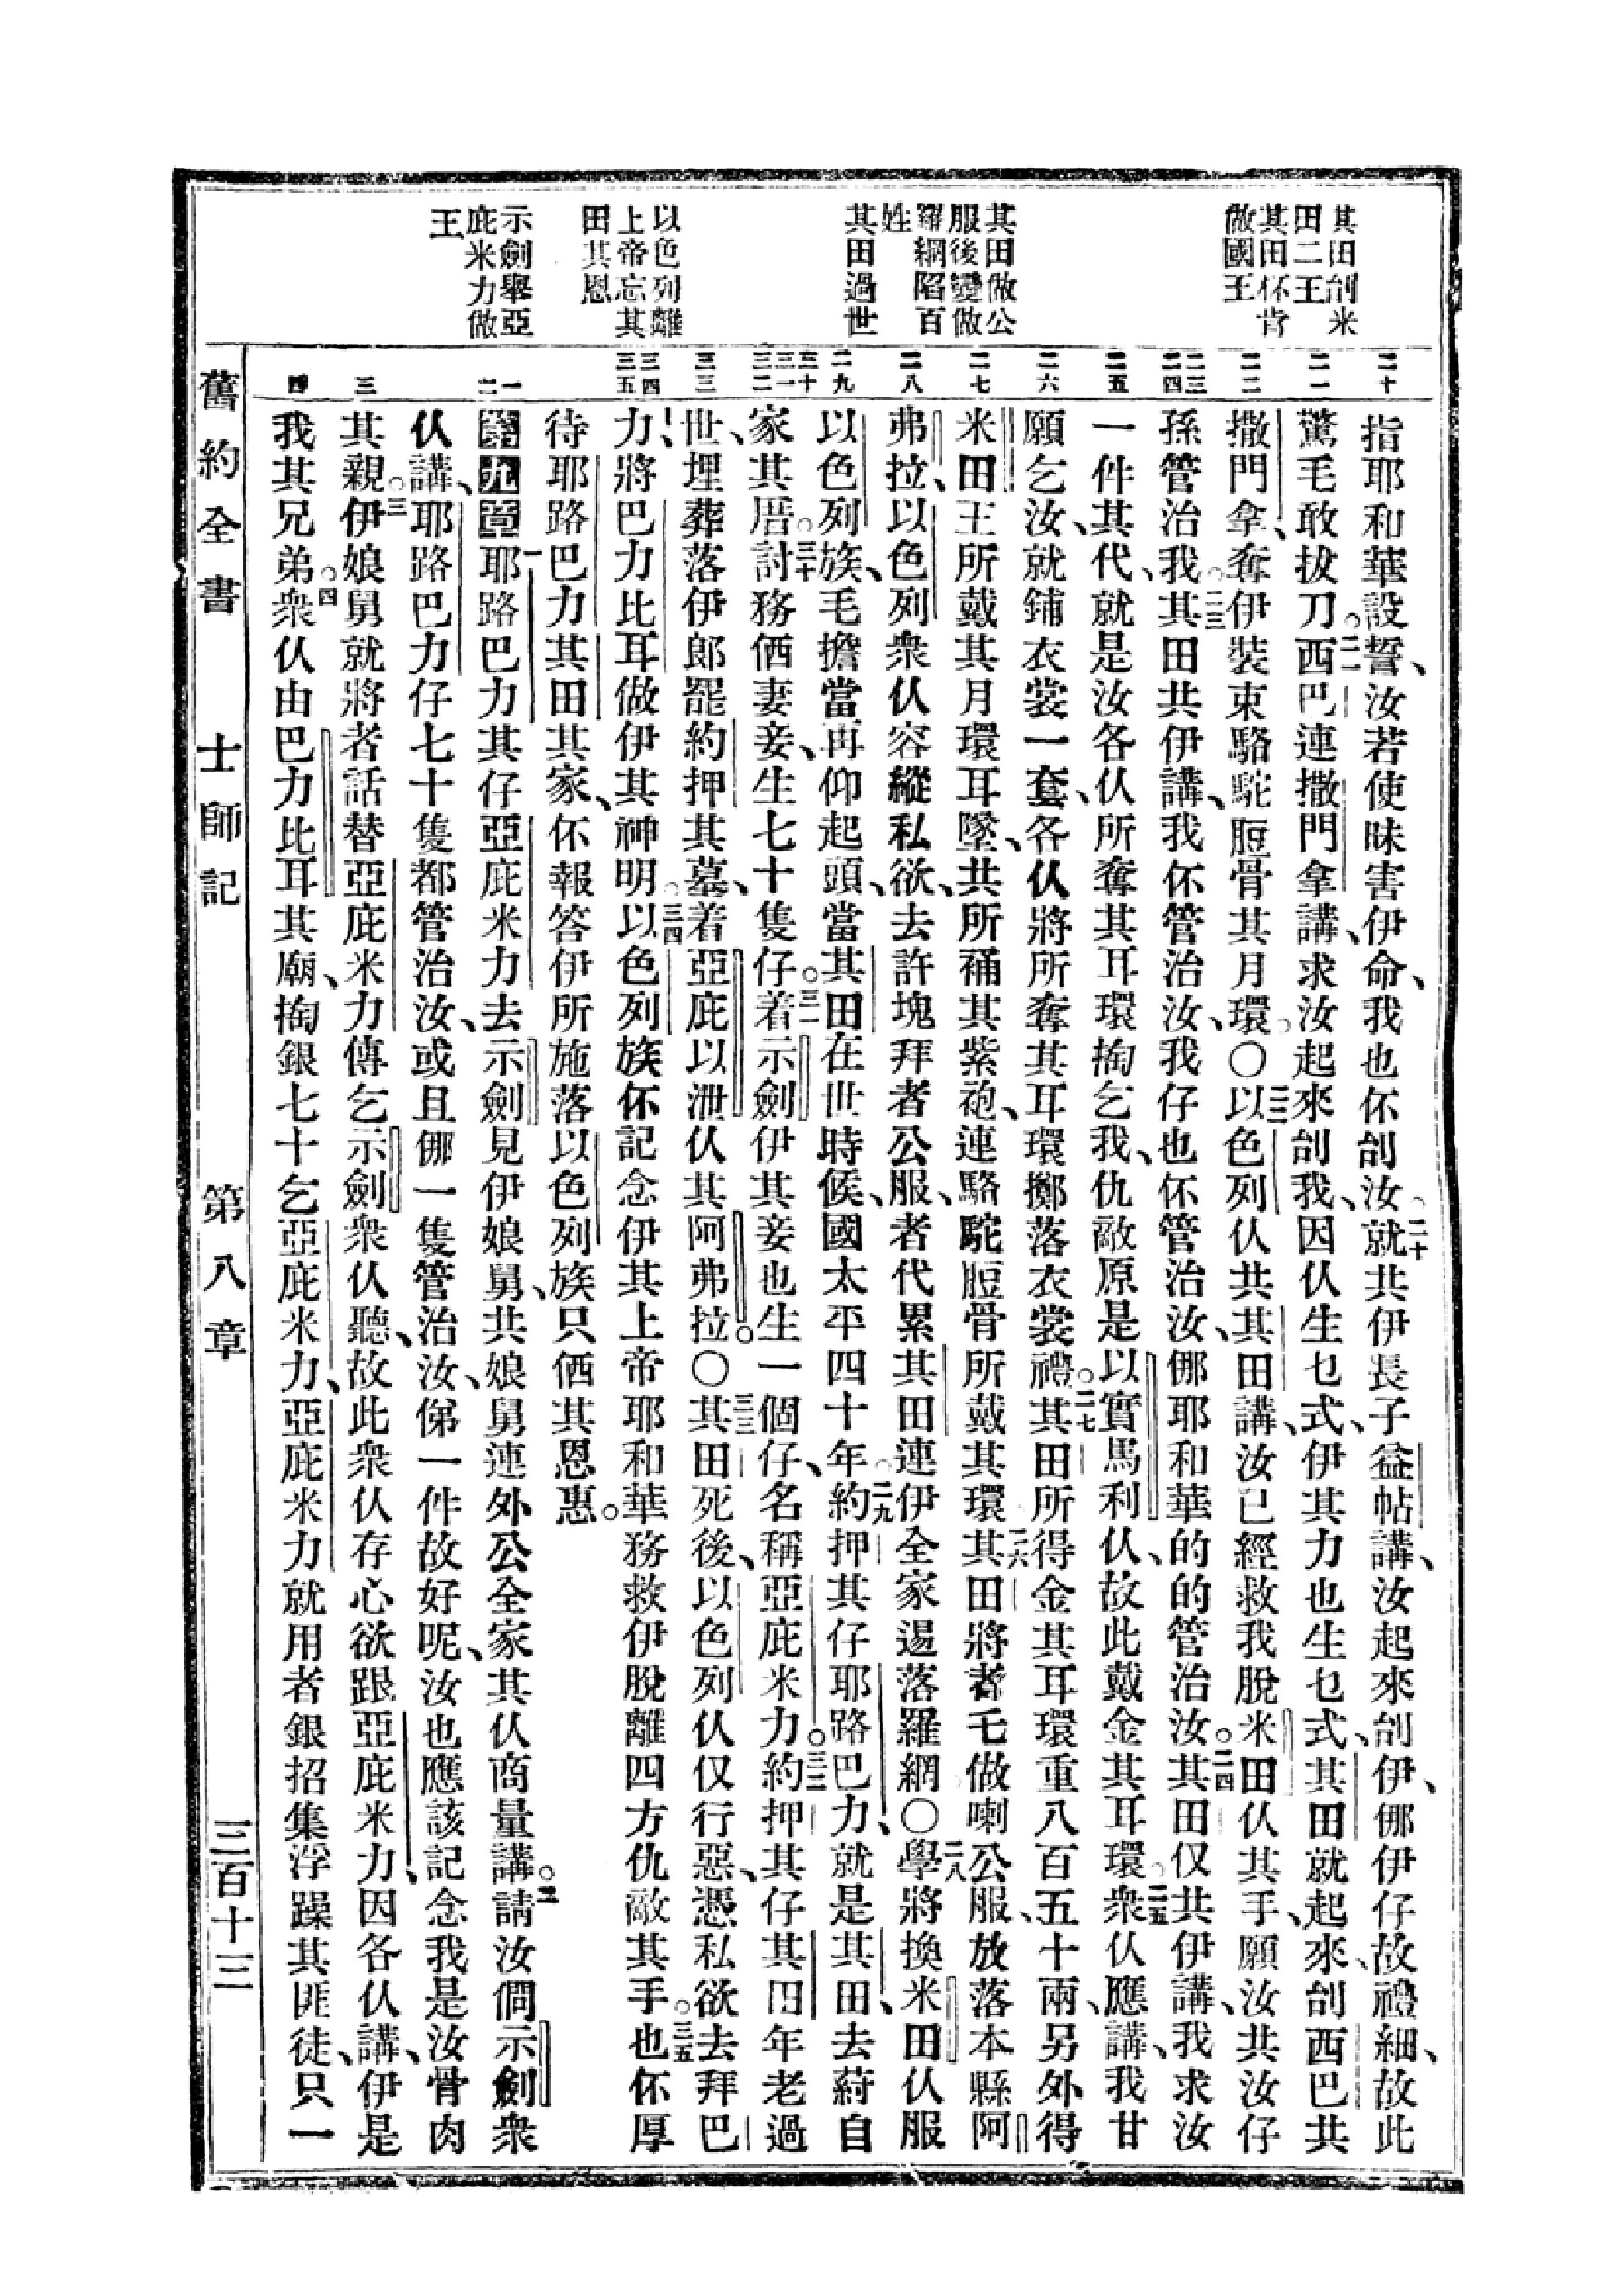 其田刣米
田二王
其田伓肯
做國王
其田做公
服後變做
羅網陷百
姓
其田過世
以色列離
上帝忘其
田其恩
示劍舉亞
庇米力做
王
二十
二一
二二
二三
二四
二五
二六
二七
二八
二九
三十
三一
三二
三三
三四
三五
一
二
三
四
指耶和華設誓、汝若使昧害伊命、我也伓刣汝。二十就共伊長子益帖講、汝起來刣伊、㑚伊仔故禮細、故此
驚毛敢拔刀。二一西巴連撒門拿講、求汝起來刣我、因仈生乜式、伊其力也生乜式、其田就起來、刣西巴共
撒門拿、奪伊裝束駱駝脰骨其月環。○二二以色列仈共其田講、汝已經救我脫米田仈其手、願汝共汝仔
孫管治我。二三其田共伊講、我伓管治汝、我仔也伓管治汝、㑚耶和華的的管治汝。二四其田仅共伊講、我求汝
一件其代、就是汝各仈所奪其耳環掏乞我、仇敵原是以實馬利仈、故此戴金其耳環。二五衆仈應講、我甘
願乞汝、就鋪衣裳一套、各仈將所奪其耳環擲落衣裳禮。二六其田所得金其耳環重八百五十兩、另外得
米田王所戴其月環耳墜、共所其紫袍、連駱駝脰骨所戴其環。二七其田將者乇做喇公服、放落本縣阿
弗拉、以色列衆仈容縱私欲、去許塊拜者公服、者代累其田連伊全家逿落羅網○二八學將換米田仈服
以色列族、毛擔當再仰起頭、當其田在世時候、國太平四十年。二九約押其仔耶路巴力、就是其田、去葤自
家其厝。三十討務価妻妾、生七十隻仔。三一着示劍伊其妾也生一個仔、名稱亞庇米力。三二約押其仔其田年老過
世、埋葬落伊郎罷約押其墓、着亞庇以泄仈其阿弗拉。○三三其田死後、以色列仈仅行惡、憑私欲去拜巴
力、將巴力比耳做伊其神明。三四以色列族伓記念伊其上帝耶和華務救伊脫離四方仇敵其手。三五也伓厚
待耶路巴力其田其家、伓報答伊所施落以色列族只価其恩惠。
第九章一耶路巴力其仔亞庇米力去示劍見伊娘舅、共娘舅連外公全家其仈商量講。二請汝僩示劍衆
仈講、耶路巴力仔七十隻都管治汝、或且㑚一隻管治汝、俤一件故好呢、汝也應該記念我是汝骨肉
其親。三伊娘舅就將者話替亞庇米力傳乞示劍衆仈聽、故此衆仈存心欲跟亞庇米力、因各仈講、伊是
我其兄弟。四衆仈由巴力比耳其廟、掏銀七十乞亞庇米力、亞庇米力就用者銀招集浮躁其匪徒、只一
舊約全書 士師記 第八章 三百十三